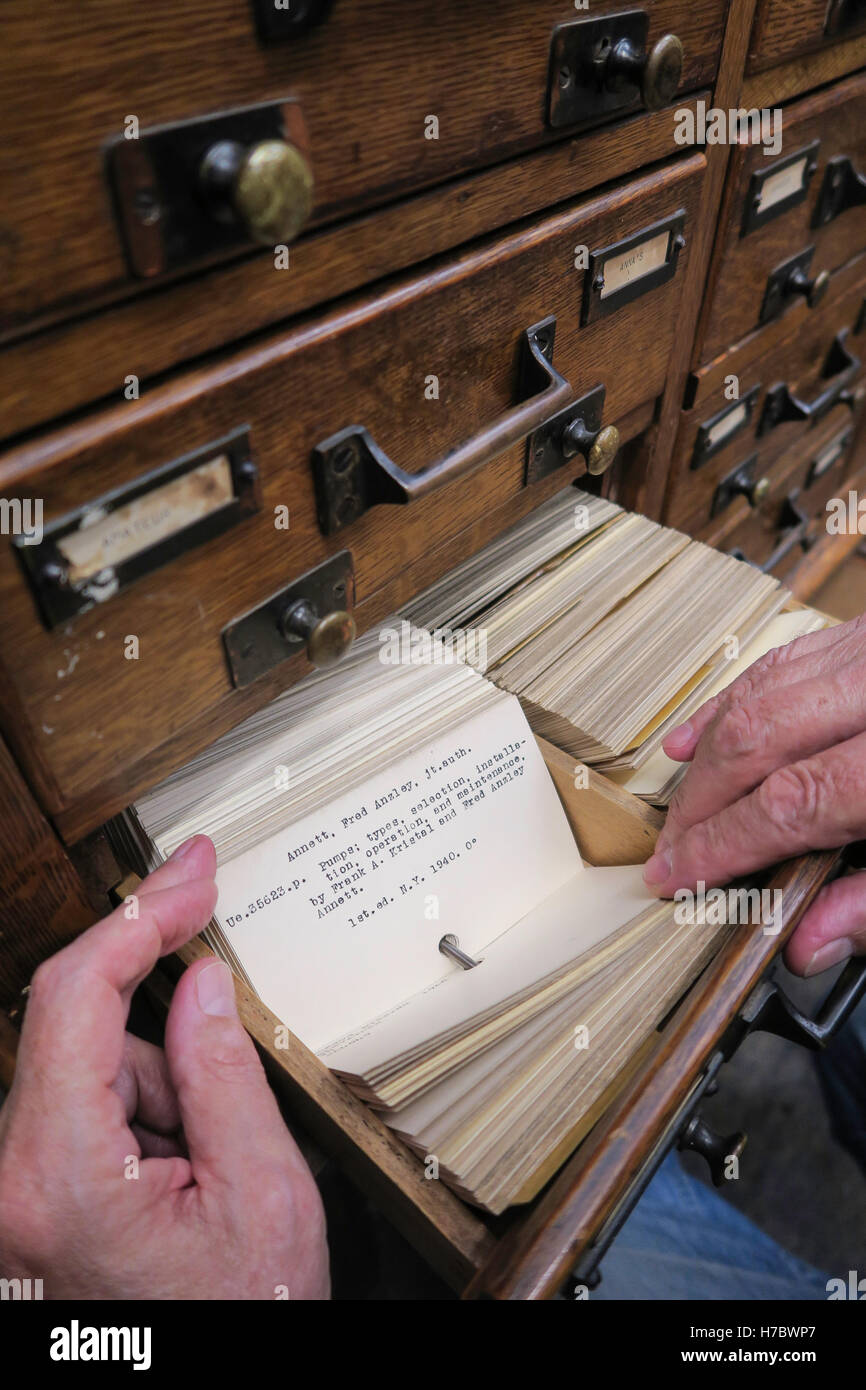 ANNA'S
AMATEUR
Annett, Fred Anzley, jt.auth.
Pumps; types, selection, installa-
tion, operation, and maintenance,
Ue.35623.p. by Frank A. Kristal and Fred Anzley
Annett.
1st.ed. N.Y. 1940. 0°
alamy
alamy
a
a
a
alamy
Image ID: H7BWP7
www.alamy.com